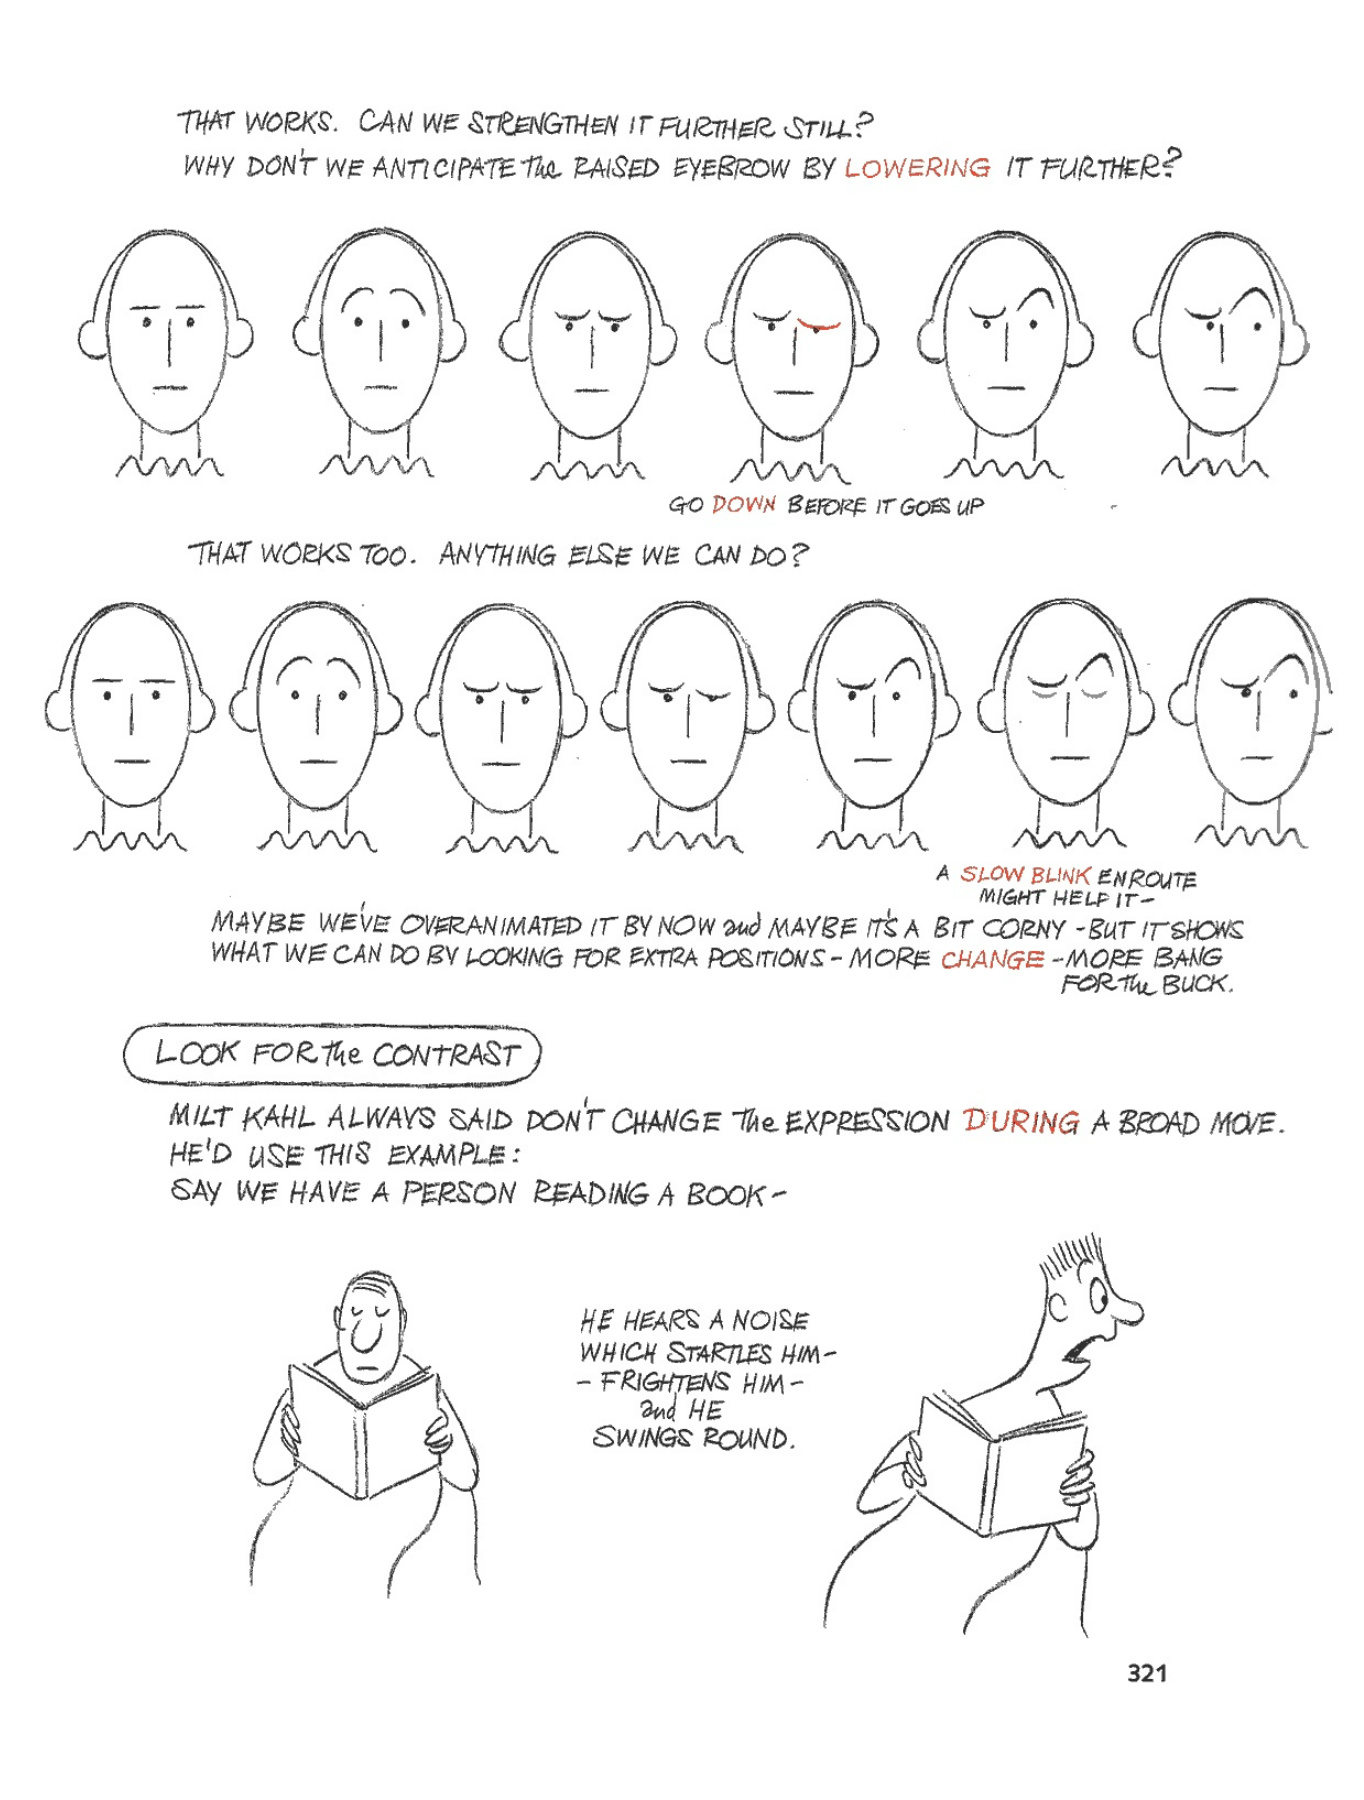 THAT WORKS. CAN WE STRENGTHEN IT FURTHER STILL?
WHY DON'T WE ANTICIPATE The RAISED EYEBROW BY LOWERING IT FURTHER?
GO DOWN BEFORE IT GOES UP
THAT WORKS TOO. ANYTHING ELSE WE CAN DO?
A SLOW BLINK ENROUTE
MIGHT HELP IT-
MAYBE WE'VE OVERANIMATED IT BY NOW and MAYBE IT'S A BIT CORNY - BUT IT SHOWS
WHAT WE CAN DO BY LOOKING FOR EXTRA POSITIONS - MORE CHANGE - MORE BANG
FOR The BUCK.
LOOK FOR the CONTRAST
MILT KAHL ALWAYS SAID DON'T CHANGE The EXPRESSION DURING A BROAD MOVE.
HE'D USE THIS EXAMPLE:
SAY WE HAVE A PERSON READING A BOOK-
HE HEARS A NOISE
WHICH STARTLES HIM-
- FRIGHTENS HIM-
and HE
SWINGS ROUND.
321